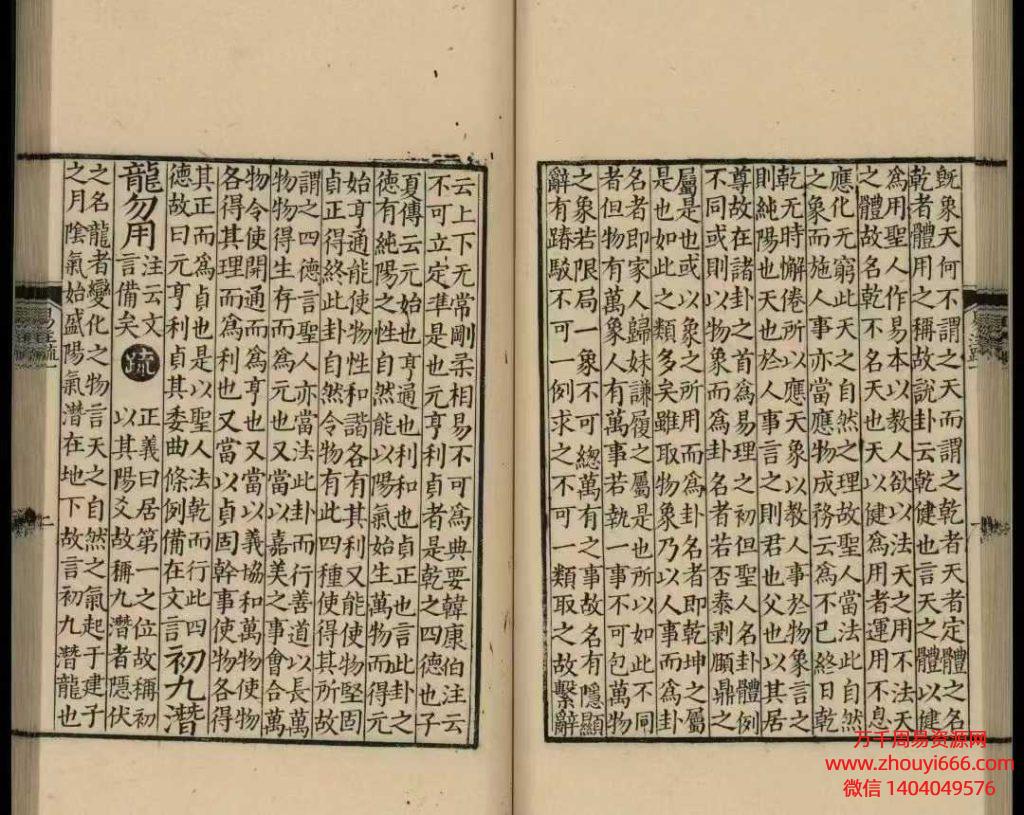 既象天何不謂之天而謂之乾者天者定體之名
乾者體用之稱故說卦云乾健也言天之體以健
爲用聖人作易本以教人欲以法天之用不法天
之體故名乾不名天也天以健爲用者運用不息
應化无窮此天之自然之理故聖人當法此自然
之象而施人事亦當應物成務云爲不已終日乾
乾无時懈倦所以應天象以教人事於物象言之
則純陽也天也於人事言之則君也父也以其居
尊故在諸卦之首爲易理之初但聖人名卦體例
不同或則以物象而爲卦名者若否泰剥頤鼎之
屬是也或以象之所用而爲卦名者即乾坤之屬
是也如此之類多矣雖取物象乃以人事而爲卦
名者即家人歸妹謙履之屬是也所以如此不同
者但物有萬象人有萬事若執一事不可包萬物
之象若限局一象不可緫萬有之事故名有隱顯
辭有踳駮不可一例求之不可一類取之故繫辭
云上下无常剛柔相易不可爲典要韓康伯注云
不可立定準是也元亨利貞者是乾之四德也子
夏傳云元始也亨通也利和也貞正也言此卦之
德有純陽之性自然能以陽氣始生萬物而得元
始亨通能使物性和諧各有其利又能使物堅固
貞正得終此卦自然令物有此四種使得其所故
謂之四德言聖人亦當法此卦而行善道以長萬
物物得生存而爲元也又當以嘉美之事會合萬
物令使開通而爲亨也又當以義協和萬物使物
各得其理而爲利也又當以貞固幹事使物各得
其正而爲貞也是以聖人法乾而行此四
德故曰元亨利貞其委曲條例備在文言
初九潛
龍勿用
注云文
言備矣
疏
正義曰居第一之位故稱初
以其陽爻故稱九潛者隱伏
之名龍者變化之物言天之自然之氣起于建子
之月陰氣始盛陽氣潛在地下故言初九潛龍也
万千周易资源网
www.zhouyi666.com
微信 1404049576